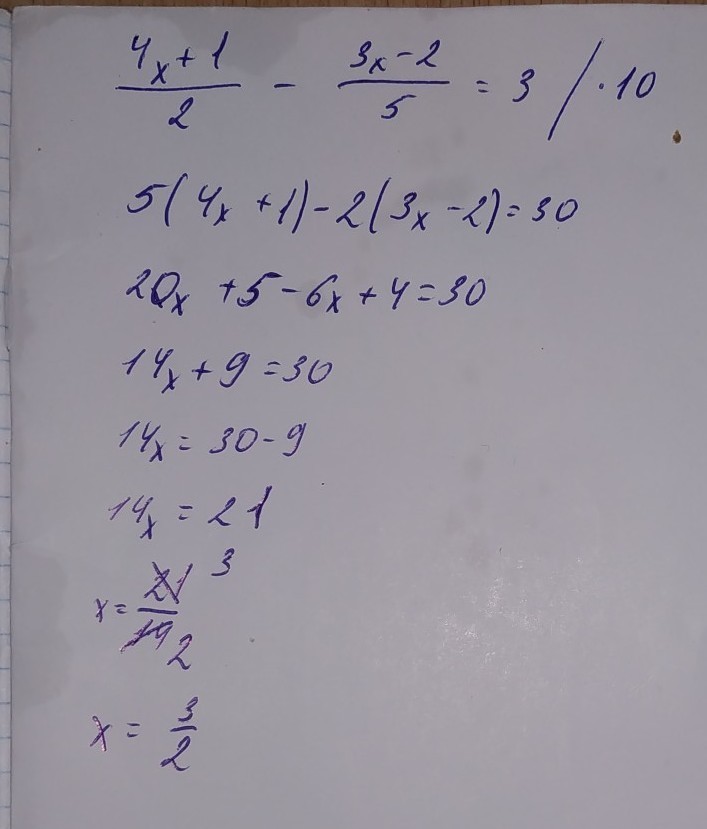 4x+1/2 - 3x-2/5 = 3 / ·10
5(4x +1)-2(3x -2)=30
20x +5-6x+4=30
14x+9=30
14x=30-9
14x=21
x=21/14 3 2
x=3/2